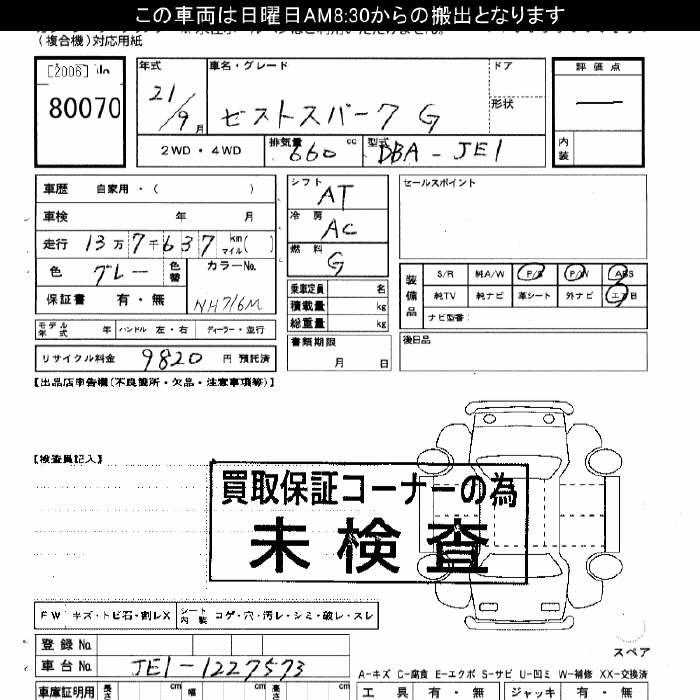 この車両は日曜日AM8:30からの搬出となります
(複合機)対応用紙
[2006] No
80070
年式
21/9月
車名・グレード
ゼストスパーク G
ドア
形状
評価点
—
内装
2WD・4WD
排気量
660 cc
型式
DBA-JE1
車歴 自家用・( )
車検 年 月
走行 13万7千637 km マイル( )
色 グレー 色替
カラーNo.
NH716M
保証書 有・無
シフト
AT
冷房
AC
燃料
G
乗車定員 名
積載量 kg
総重量 kg
書類期限
月 日
セールスポイント
装備品
S/R 純A/W P/S P/W ABS
純TV 純ナビ 革シート 外ナビ エアB
ナビ型番:
後日品
モデル年式 年 ハンドル 左・右 ディーラー・並行
リサイクル料金 9820 円 預託済
【出品店申告欄(不良箇所・欠品・注意事項等)】
【検査員記入】
買取保証コーナーの為
未検査
FW キズ・トビ石・割レX
シート内装 コゲ・穴・汚レ・シミ・破レ・スレ
スペア
登録No.
車台No. JE1-1227573
A-キズ C-腐食 E-エクボ S-サビ U-凹ミ W-補修 XX-交換済
車庫証明用 長さ cm 幅 cm 高さ cm
工具 有・無 ジャッキ 有・無